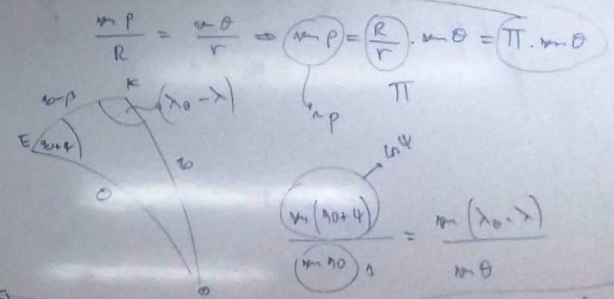 sin p / R = sin θ / r ⇒ sin p = R / r . sin θ = Π . sin θ
Π
~p
K
90-β
(λ⊙ - λ)
E
90+ψ
90
θ
⊙
cos ψ
sin (90+ψ) / sin 90 = sin (λ⊙ - λ) / sin θ
1